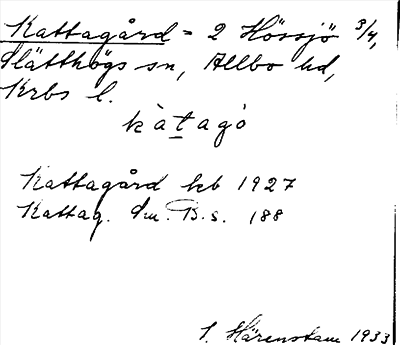 Kattagård = 2 Hössjö 3/4,
Slätthögs sn, Allbo hd,
Krbs l.
kàtagò
Kattagård kb 1927
Kattag. Sm. B.s. 188
S. Härenstam 1933